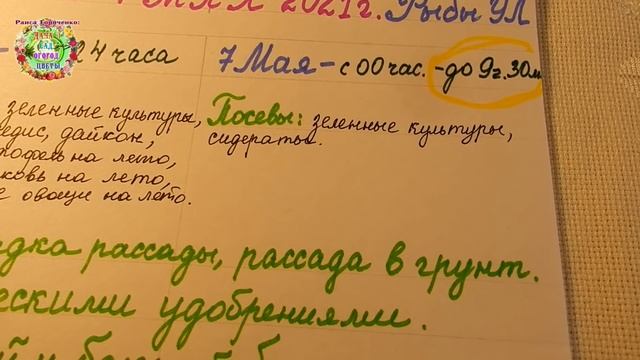 Раиса Горяченко:
ДАЧА
САД
ОГОРОД
ЦВЕТЫ
2021г. Рыбы УЛ
24 часа
7 Мая - с 00 час. - до 9г. 30м
зеленные культуры,
редис, дайкон,
картофель на лето,
морковь на лето,
овощи на лето.
Посевы: зеленные культуры,
сидераты.
рассады, рассада в грунт.
удобрениями.